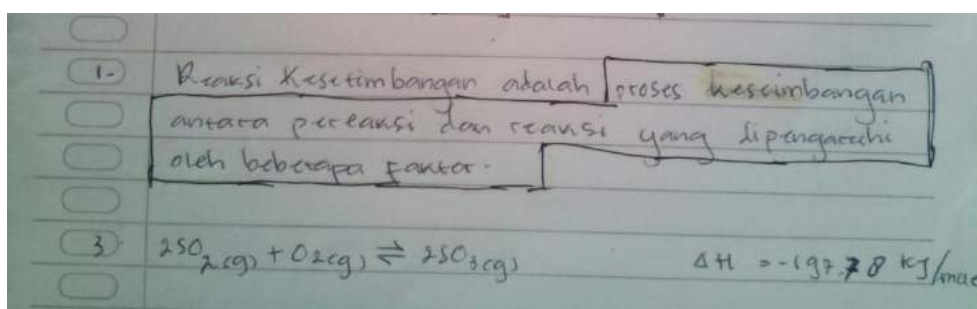 1. Reaksi Kesetimbangan adalah proses keseimbangan
antara pereaksi dan reaksi yang dipengaruhi
oleh beberapa faktor.
3. 2SO2(g) + O2(g) ⇌ 2SO3(g) ΔH = -197.78 KJ/mol